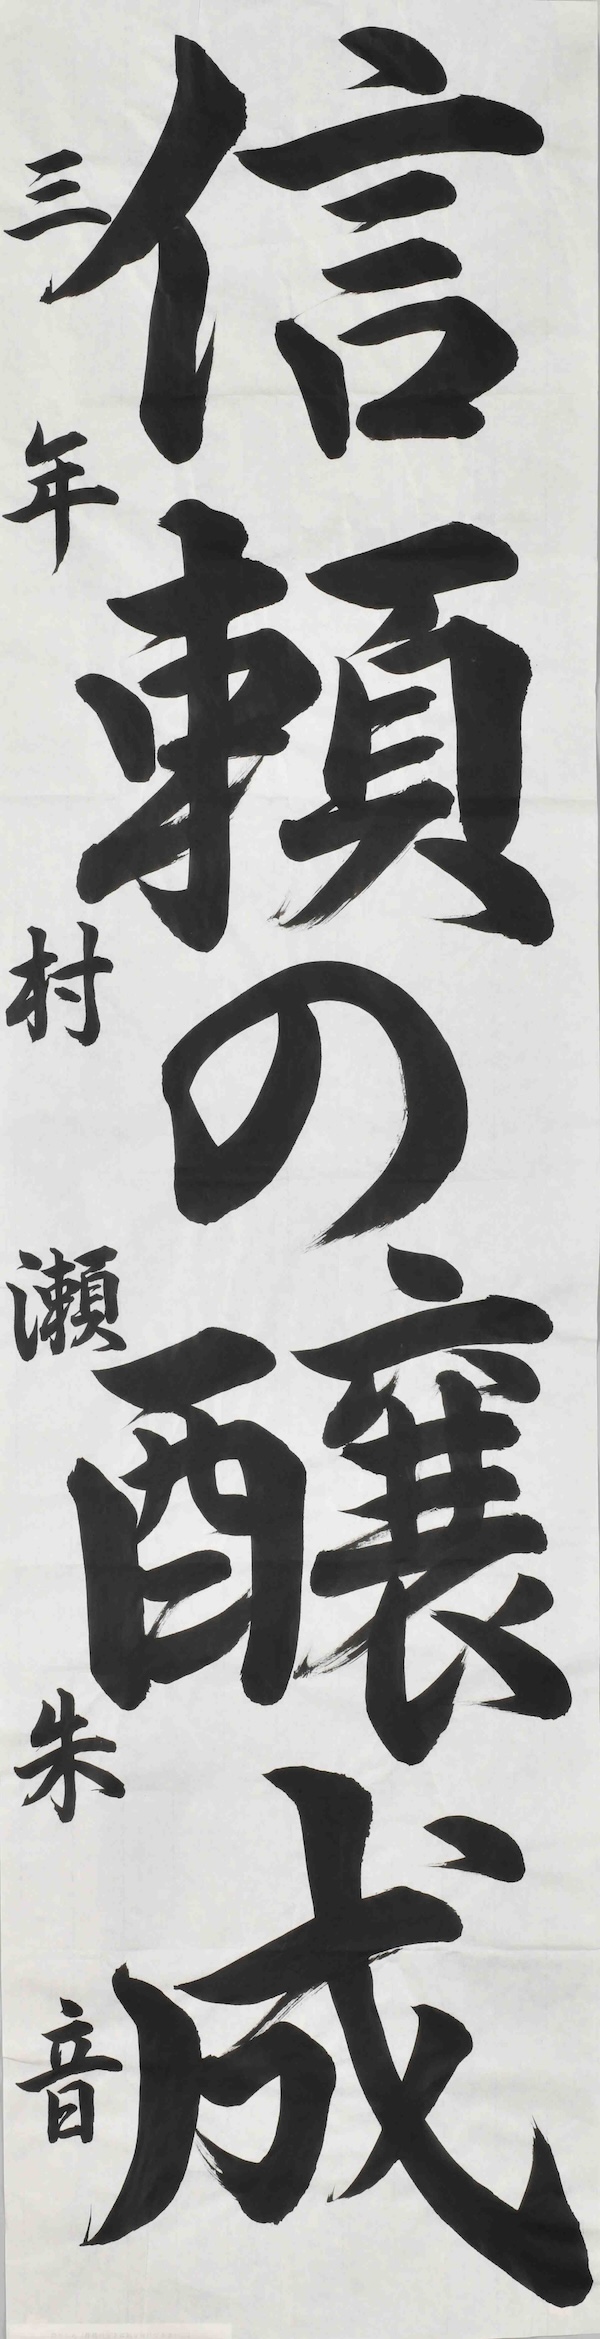 信頼の醸成
三年 村瀬朱音